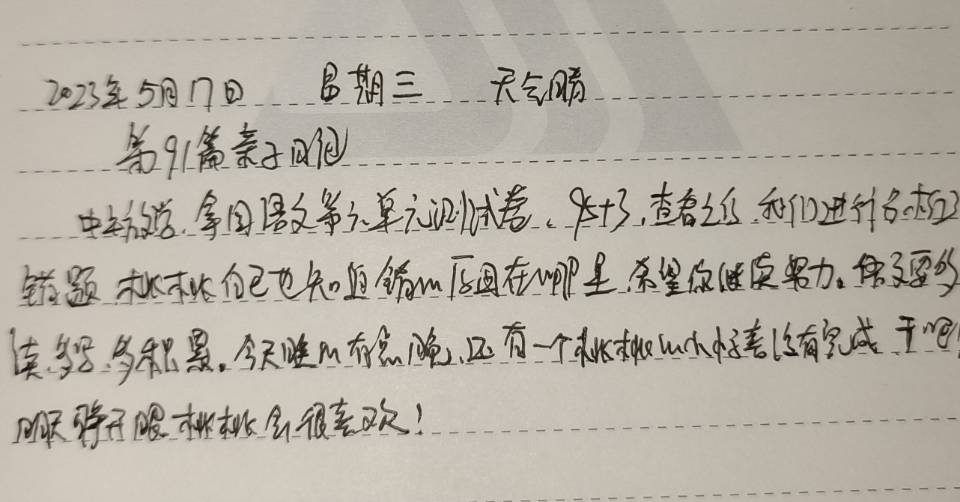 2023年5月17日 星期三 天气晴
第91篇亲子日记
中午放学,拿回语文第六单元测试卷、95+3,查看之后 我们进行分析
错题 桃桃自己也知道错的原因在哪里 希望你继续努力。语文要多
读、多写、多积累。今天睡的有点晚,还有一个桃桃的小 没有完成
明天睁开眼 桃桃会很喜欢!